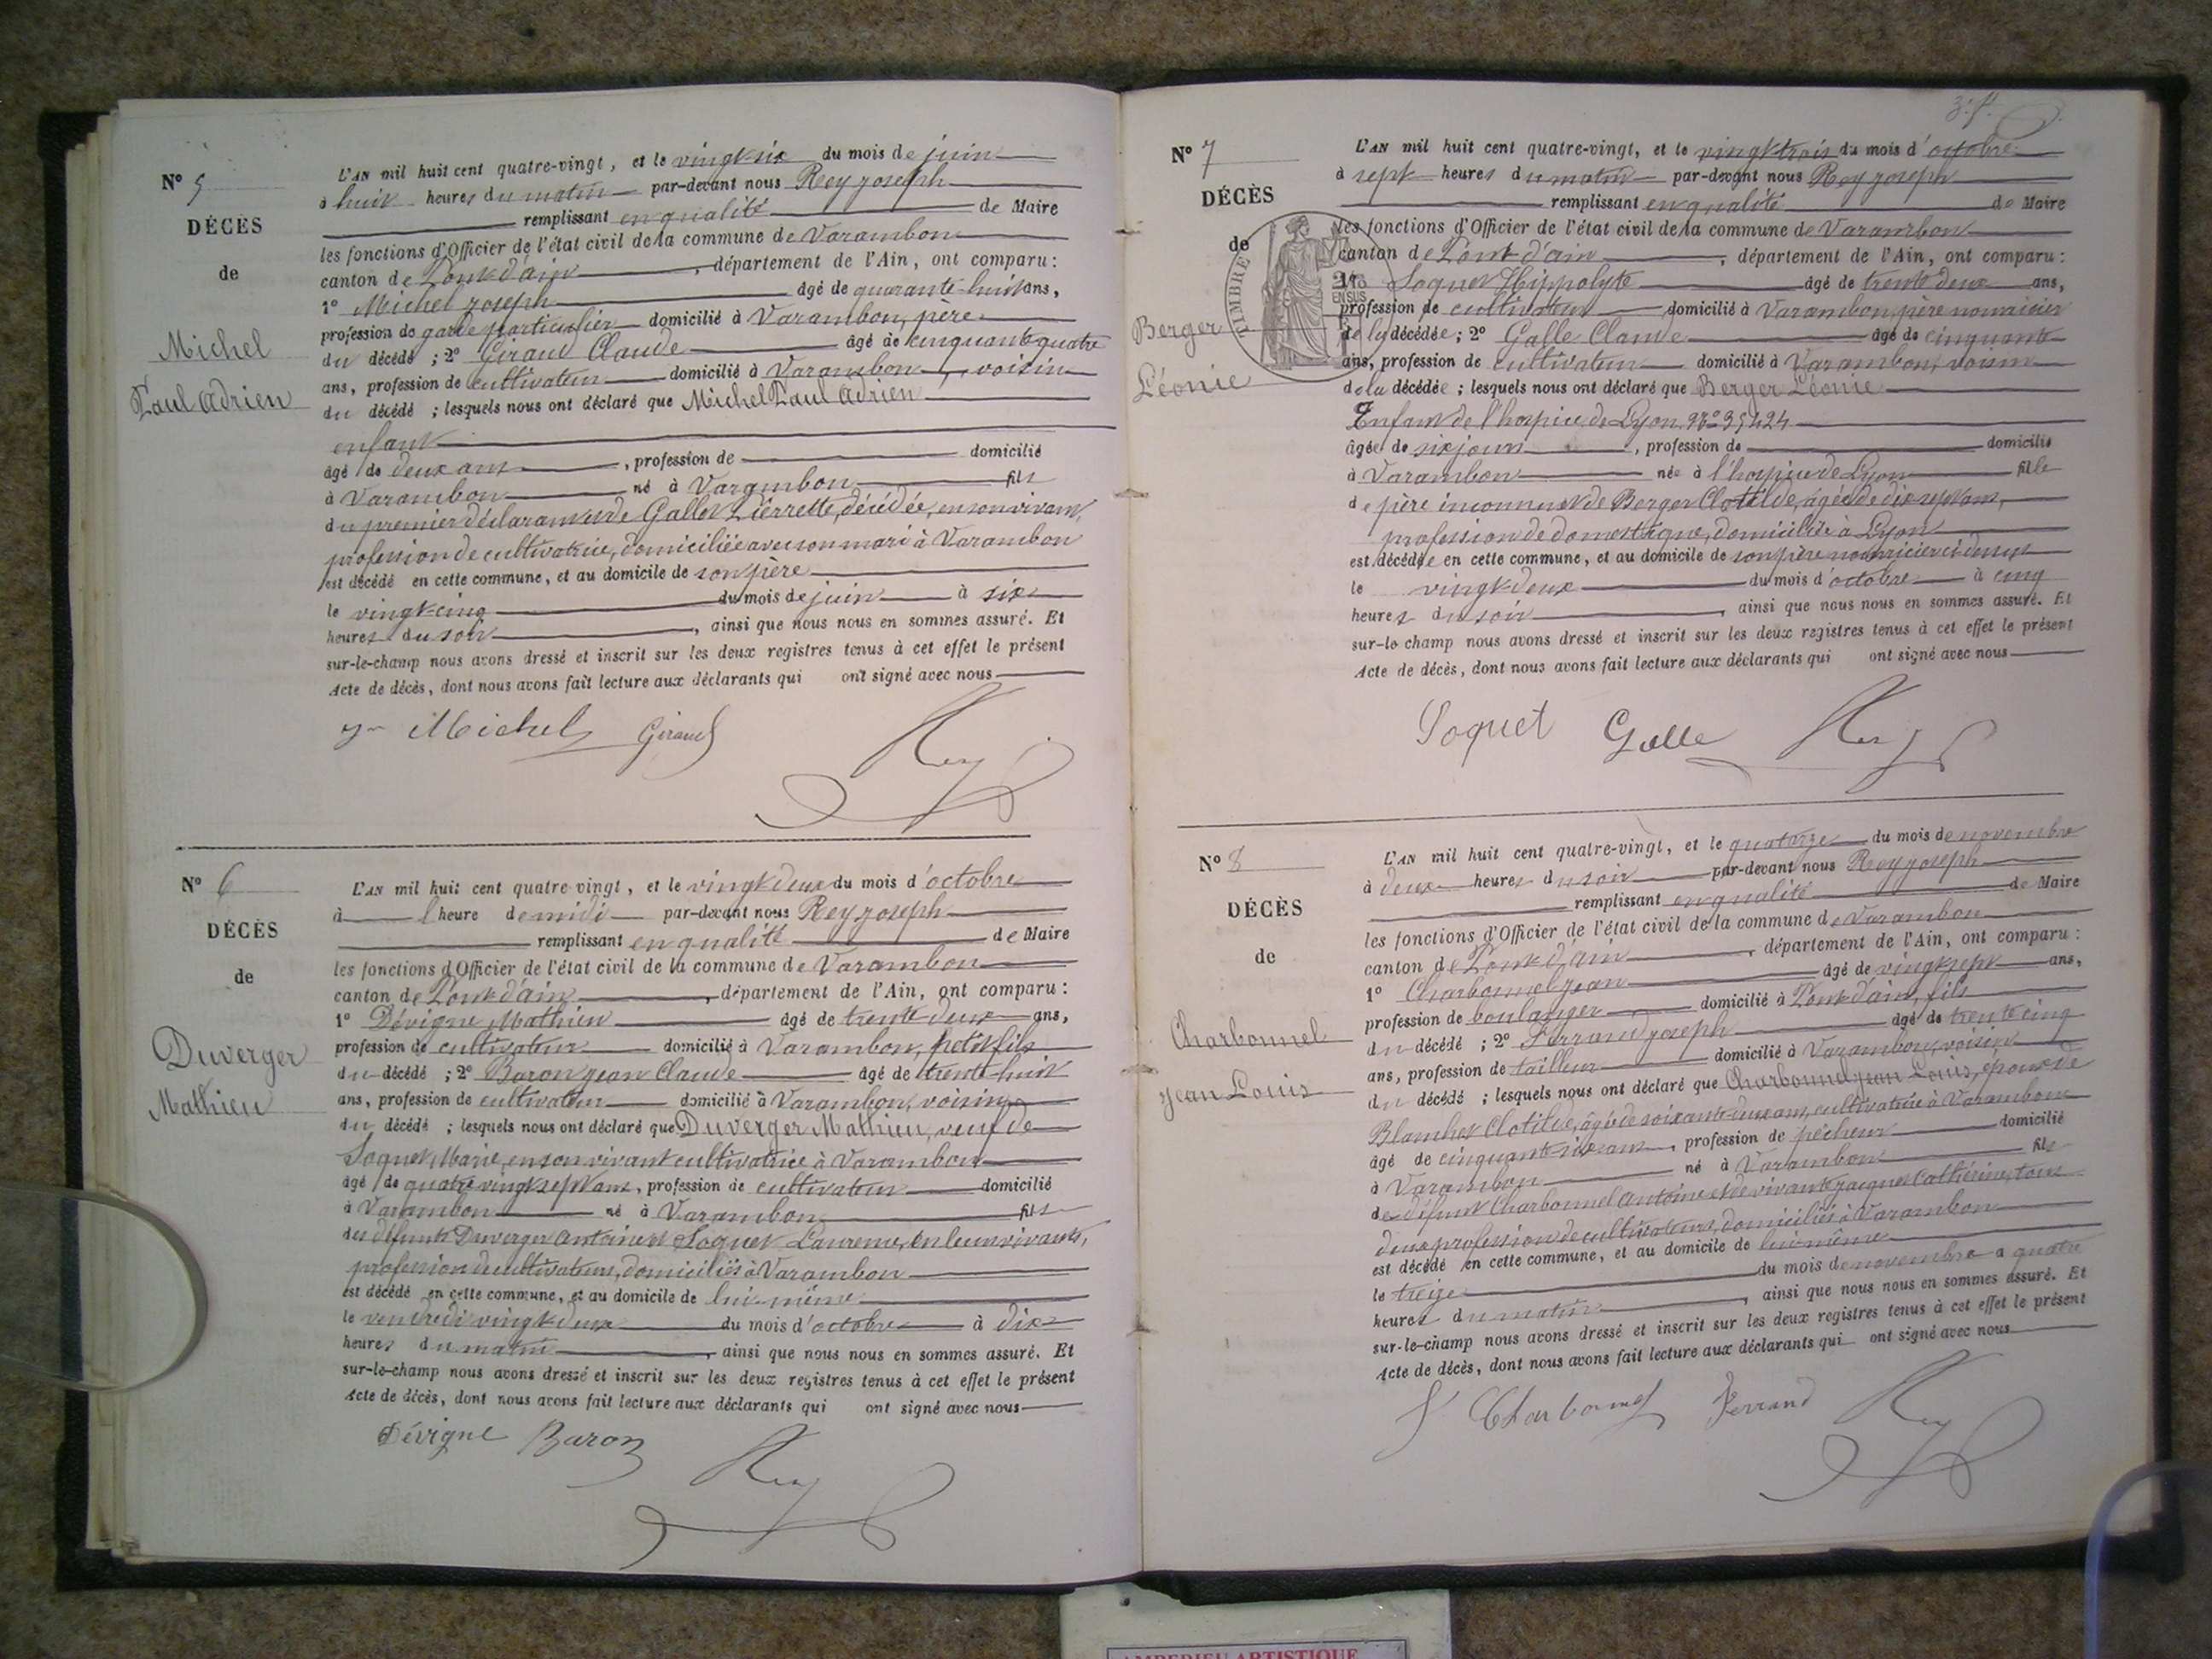 N° 5
DÉCÈS
de
Michel
Paul Adrien
L'AN mil huit cent quatre-vingt, et le vingt-six du mois de juin
à huit heures du matin par-devant nous Rey Joseph
remplissant en qualité de Maire
les fonctions d'Officier de l'état civil de la commune de Varambon
canton de Pont d'ain, département de l'Ain, ont comparu :
1° Michel Joseph âgé de quarante-huit ans,
profession de garde particulier domicilié à Varambon, père
du décédé ; 2° Giraud Claude âgé de cinquante quatre
ans, profession de cultivateur domicilié à Varambon, voisin
du décédé ; lesquels nous ont déclaré que Michel Paul Adrien
enfant
âgé de deux ans, profession de domicilié
à Varambon né à Varambon fils
du premier déclarant et de Gallet Pierrette, décédée, en son vivant,
profession de cultivatrice, domiciliée avec son mari à Varambon
est décédé en cette commune, et au domicile de son père
le vingt-cinq du mois de juin à six
heures du soir, ainsi que nous nous en sommes assuré. Et
sur-le-champ nous avons dressé et inscrit sur les deux registres tenus à cet effet le présent
Acte de décès, dont nous avons fait lecture aux déclarants qui ont signé avec nous
Michel Giraud Rey
N° 6
DÉCÈS
de
Duverger
Mathieu
L'AN mil huit cent quatre-vingt, et le vingt deux du mois d'octobre
à l'heure de midi par-devant nous Rey Joseph
remplissant en qualité de Maire
les fonctions d'Officier de l'état civil de la commune de Varambon
canton de Pont d'ain, département de l'Ain, ont comparu :
1° Dévigne Mathieu âgé de trente deux ans,
profession de cultivateur domicilié à Varambon, petit fils
du décédé ; 2° Baron Jean Claude âgé de trente-huit
ans, profession de cultivateur domicilié à Varambon, voisin
du décédé ; lesquels nous ont déclaré que Duverger Mathieu, veuf de
Soquet Marie, en son vivant cultivatrice à Varambon
âgé de quatre vingt sept ans, profession de cultivateur domicilié
à Varambon né à Varambon fils
des défunts Duverger Antoine et Soquet Laurence, en leurs vivants,
profession de cultivateurs, domiciliés à Varambon
est décédé en cette commune, et au domicile de lui-même
le vendredi vingt deux du mois d'octobre à dix
heures du matin, ainsi que nous nous en sommes assuré. Et
sur-le-champ nous avons dressé et inscrit sur les deux registres tenus à cet effet le présent
Acte de décès, dont nous avons fait lecture aux déclarants qui ont signé avec nous
Dévigne Baron Rey
N° 7
DÉCÈS
de
TIMBRE
EN SUS
Berger
Léonie
L'AN mil huit cent quatre-vingt, et le vingt trois du mois d'octobre
à sept heures du matin par-devant nous Rey Joseph
remplissant en qualité de Maire
les fonctions d'Officier de l'état civil de la commune de Varambon
canton de Pont d'ain, département de l'Ain, ont comparu :
1° Soquet Hippolyte âgé de trente deux ans,
profession de cultivateur domicilié à Varambon, père nourricier
de la décédée ; 2° Galle Claude âgé de cinquante
ans, profession de cultivateur domicilié à Varambon, voisin
de la décédée ; lesquels nous ont déclaré que Berger Léonie
Enfant de l'hospice de Lyon, N° 35424
âgée de six jours, profession de domicilié
à Varambon née à l'hospice de Lyon fille
de père inconnu et de Berger Clotilde, âgée de dix sept ans,
profession de domestique, domiciliée à Lyon
est décédée en cette commune, et au domicile de son père nourricier ci dessus
le vingt deux du mois d'octobre à cinq
heures du soir, ainsi que nous nous en sommes assuré. Et
sur-le champ nous avons dressé et inscrit sur les deux registres tenus à cet effet le présent
Acte de décès, dont nous avons fait lecture aux déclarants qui ont signé avec nous
Soquet Galle Rey
N° 8
DÉCÈS
de
Charbonnel
Jean Louis
L'AN mil huit cent quatre-vingt, et le quatorze du mois de novembre
à deux heures du soir par-devant nous Rey Joseph
remplissant en qualité de Maire
les fonctions d'Officier de l'état civil de la commune de Varambon
canton de Pont d'ain, département de l'Ain, ont comparu :
1° Charbonnel Jean âgé de vingt sept ans,
profession de boulanger domicilié à Pont d'ain, fils
du décédé ; 2° Ferrand Joseph âgé de trente cinq
ans, profession de tailleur domicilié à Varambon, voisin
du décédé ; lesquels nous ont déclaré que Charbonnel Jean Louis, époux de
Blanchet Clotilde, âgée de soixante deux ans, cultivatrice à Varambon
âgé de cinquante-six ans, profession de pêcheur domicilié
à Varambon né à Varambon fils
de défunt Charbonnel Antoine et de vivante Jacquet Cathérine, tous
deux profession de cultivateurs, domiciliés à Varambon
est décédé en cette commune, et au domicile de lui-même
le treize du mois de novembre à quatre
heures du matin, ainsi que nous nous en sommes assuré. Et
sur-le-champ nous avons dressé et inscrit sur les deux registres tenus à cet effet le présent
Acte de décès, dont nous avons fait lecture aux déclarants qui ont signé avec nous
Charbonnel Ferrand Rey
AMBERIEU ARTISTIQUE